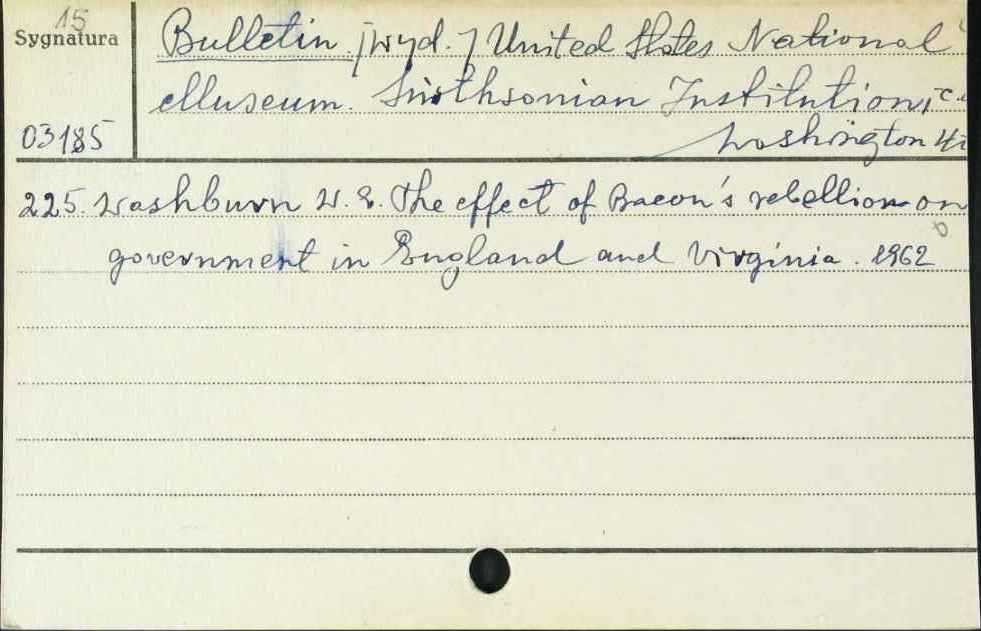 15
Sygnatura
Bulletin [wyd.] United States National
Museum. Smithsonian Institution,
03185
Washington
225. Washburn W.E. The effect of Bacon's rebellion on
government in England and Virginia. 1962